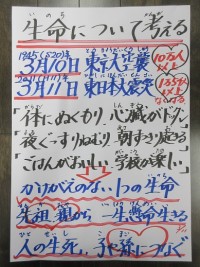 いのち
生命について考える
1945(S20)年
3月10日 東京大空襲 10万人以上
2011(H23)年
3月11日 東日本大震災
「体にぬくもり 心臓がドキドキ」
「夜ぐっすりねむり 朝すっきり起きる」
「ごはんがおいしい 学校が楽しい」
かけがえのない1つの生命
先祖、親から 一生懸命生きる
人の生死… 子や孫につなぐ